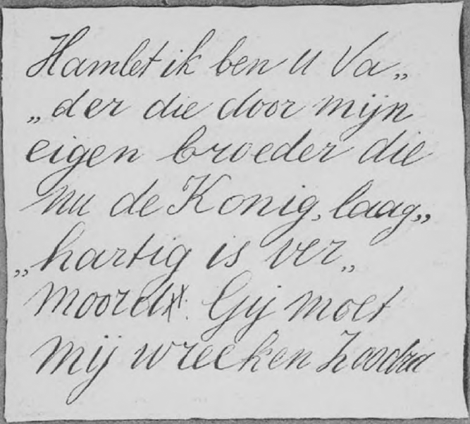 Hamlet ik ben U Va„
„der die door mijn
eigen broeder die
nu de Konig, laag„
„hartig is ver„
moord. Gij moet
mij wreeken Zoodra